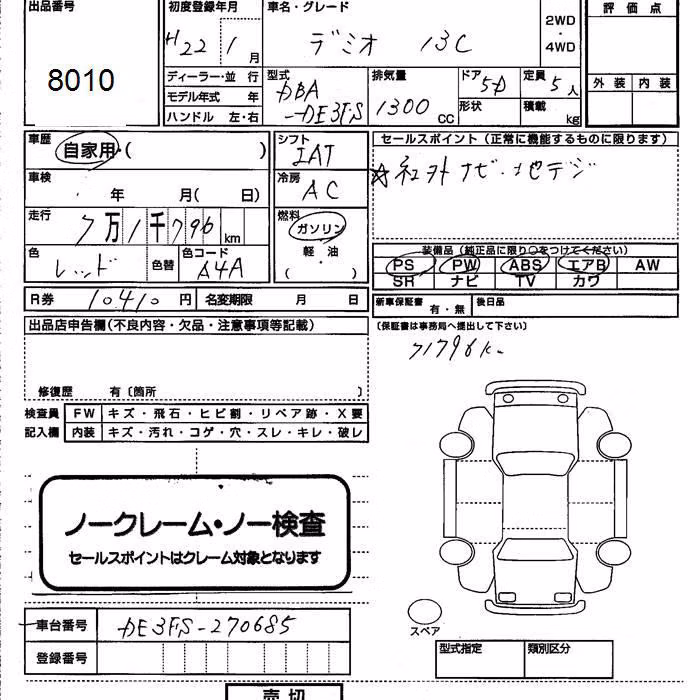 出品番号
8010
初度登録年月
H22 1 月
車名・グレード
デミオ 13C
2WD
・
4WD
評価点
外装 内装
ディーラー・並 行
モデル年式 年
ハンドル 左・右
型式
DBA
-DE3FS
排気量
1300 CC
ドア 5D
形状
定員 5人
積載 kg
車歴
自家用・( )
車検
年 月( 日)
走行
7万1千796 km
色
レッド
色替
色コード
A4A
シフト
IAT
冷房
AC
燃料
ガソリン
軽・油
( ・ )
セールスポイント(正常に機能するものに限ります)
☆社外ナビ・地デジ
装備品(純正品に限り○をつけてください)
PS PW ABS エアB AW
SR ナビ TV カワ
R券 10410 円 名変期限 月 日
新車保証書 有・無 後日品
(保証書は事務局へ提出して下さい)
出品店申告欄(不良内容・欠品・注意事項等記載)
71796k
修復歴 有〔箇所 〕
検査員 FW キズ・飛石・ヒビ割・リペア跡・X要
記入欄 内装 キズ・汚れ・コゲ・穴・スレ・キレ・破レ
ノークレーム・ノー検査
セールスポイントはクレーム対象となります
車台番号 DE3FS-270685
登録番号
スペア
型式指定 類別区分
売切